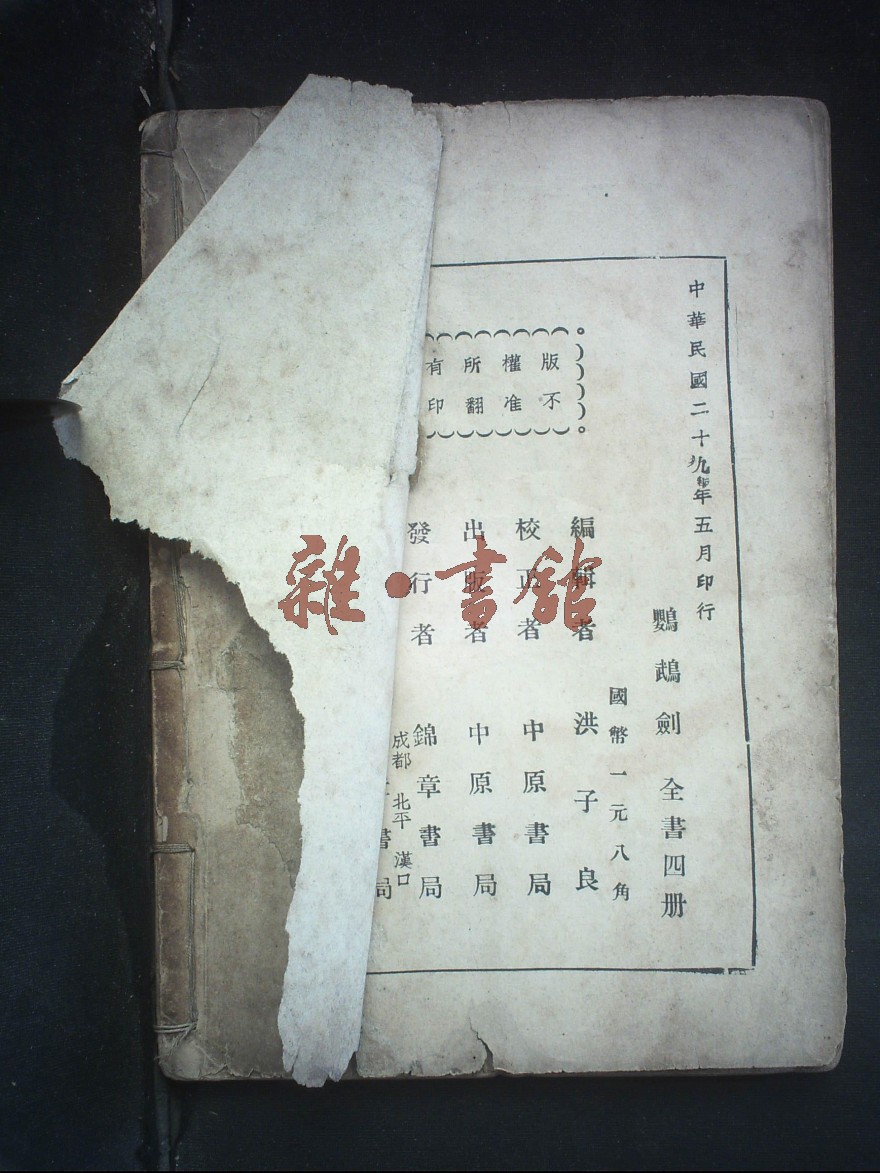 中華民國二十九年五月印行
鸚鵡劍 全書四册
國幣一元八角
編輯者 洪子良
校正者 中原書局
出版者 中原書局
發行者 錦章書局
成都 北平 漢口
書局
版權所有
不准翻印
雜·書館